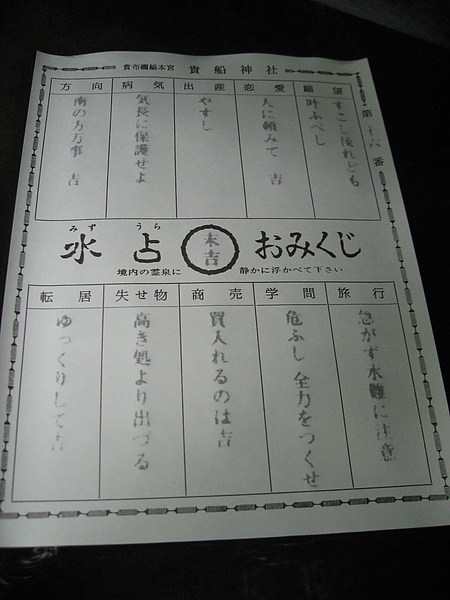 貴布禰総本宮 貴船神社
第十六番
願望
すこし後れども
叶ふべし
恋愛
人に頼みて 吉
出産
やすし
病気
気長に保護せよ
方向
南の方万事 吉
みず うら
水占 おみくじ
末吉
境内の霊泉に 静かに浮かべて下さい
旅行
急がず水難に注意
学問
危ふし 全力をつくせ
商売
買入れるのは吉
失せ物
高き処より出づる
転居
ゆっくりして吉